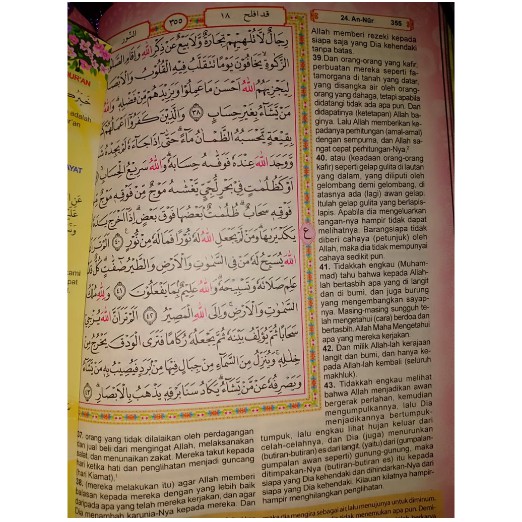 النّور
٣٥٥
قد افلح ١٨
24. An-Nûr
355
رِجَالٌ لَّا تُلْهِيْهِمْ تِجَارَةٌ وَّلَا بَيْعٌ عَنْ ذِكْرِ اللّٰهِ وَاِقَامِ الصَّلٰوةِ وَاِيْتَاۤءِ
الزَّكٰوةِ يَخَافُوْنَ يَوْمًا تَتَقَلَّبُ فِيْهِ الْقُلُوْبُ وَالْاَبْصَارُ
لِيَجْزِيَهُمُ اللّٰهُ اَحْسَنَ مَا عَمِلُوْا وَيَزِيْدَهُمْ مِّنْ فَضْلِهٖ وَاللّٰهُ يَرْزُقُ
مَنْ يَّشَاۤءُ بِغَيْرِ حِسَابٍ ٣٨ وَالَّذِيْنَ كَفَرُوْٓا اَعْمَالُهُمْ كَسَرَابٍۢ
بِقِيْعَةٍ يَّحْسَبُهُ الظَّمْاٰنُ مَاۤءً حَتّٰٓى اِذَا جَاۤءَهٗ لَمْ يَجِدْهُ شَيْـًٔا
وَّوَجَدَ اللّٰهَ عِنْدَهٗ فَوَفّٰىهُ حِسَابَهٗ وَاللّٰهُ سَرِيْعُ الْحِسَابِ
اَوْ كَظُلُمٰتٍ فِيْ بَحْرٍ لُّجِّيٍّ يَّغْشٰىهُ مَوْجٌ مِّنْ فَوْقِهٖ مَوْجٌ مِّنْ
فَوْقِهٖ سَحَابٌ ظُلُمٰتٌۢ بَعْضُهَا فَوْقَ بَعْضٍ اِذَآ اَخْرَجَ يَدَهٗ لَمْ
يَكَدْ يَرٰىهَا وَمَنْ لَّمْ يَجْعَلِ اللّٰهُ لَهٗ نُوْرًا فَمَا لَهٗ مِنْ نُّوْرٍ ٤٠ اَلَمْ تَرَ اَنَّ
اللّٰهَ يُسَبِّحُ لَهٗ مَنْ فِى السَّمٰوٰتِ وَالْاَرْضِ وَالطَّيْرُ صٰۤفّٰتٍ كُلٌّ قَدْ
عَلِمَ صَلَاتَهٗ وَتَسْبِيْحَهٗ وَاللّٰهُ عَلِيْمٌۢ بِمَا يَفْعَلُوْنَ ٤١ وَلِلّٰهِ مُلْكُ
السَّمٰوٰتِ وَالْاَرْضِ وَاِلَى اللّٰهِ الْمَصِيْرُ ٤٢ اَلَمْ تَرَ اَنَّ اللّٰهَ يُزْجِيْ
سَحَابًا ثُمَّ يُؤَلِّفُ بَيْنَهٗ ثُمَّ يَجْعَلُهٗ رُكَامًا فَتَرَى الْوَدْقَ يَخْرُجُ مِنْ
خِلٰلِهٖ وَيُنَزِّلُ مِنَ السَّمَاۤءِ مِنْ جِبَالٍ فِيْهَا مِنْۢ بَرَدٍ فَيُصِيْبُ بِهٖ مَنْ يَّشَاۤءُ
وَيَصْرِفُهٗ عَنْ مَّنْ يَّشَاۤءُ يَكَادُ سَنَا بَرْقِهٖ يَذْهَبُ بِالْاَبْصَارِ ٤٣
ع
Allah memberi rezeki kepada
siapa saja yang Dia kehendaki
tanpa batas.
39. Dan orang-orang yang kafir,
perbuatan mereka seperti fa-
tamorgana di tanah yang datar,
yang disangka air oleh orang-
orang yang dahaga, tetapi apabila
didatangi tidak ada apa pun. Dan
didapatinya (ketetapan) Allah ba-
ginya. Lalu Allah memberikan ke-
padanya perhitungan (amal-amal)
dengan sempurna, dan Allah sa-
ngat cepat perhitungan-Nya.
40. atau (keadaan orang-orang
kafir) seperti gelap gulita di lautan
yang dalam, yang diliputi oleh
gelombang demi gelombang, di
atasnya ada (lagi) awan gelap.
Itulah gelap gulita yang berlapis-
lapis. Apabila dia mengeluarkan
tangan-nya hampir tidak dapat
melihatnya. Barangsiapa tidak
diberi cahaya (petunjuk) oleh
Allah, maka dia tidak mempunyai
cahaya sedikit pun.
41. Tidakkah engkau (Muham-
mad) tahu bahwa kepada Allah-
lah bertasbih apa yang di langit
dan di bumi, dan juga burung
yang mengembangkan sayap-
nya. Masing-masing sungguh te-
lah mengetahui (cara) berdoa dan
bertasbih. Allah Maha Mengetahui
apa yang mereka kerjakan.
42. Dan milik Allah-lah kerajaan
langit dan bumi, dan hanya ke-
pada Allah-lah kembali (seluruh
makhluk).
43. Tidakkah engkau melihat
bahwa Allah menjadikan awan
bergerak perlahan, kemudian
mengumpulkannya, lalu Dia
menjadikannya bertumpuk-
tumpuk, lalu engkau lihat hujan keluar dari
celah-celahnya, dan Dia (juga) menurunkan
(butiran-butiran) es dari langit, (yaitu) dari (gumpalan-
gumpalan awan seperti) gunung-gunung, maka
ditimpakan-Nya (butiran-butiran es) itu kepada
siapa yang Dia kehendaki dan dihindarkan-Nya dari
siapa yang Dia kehendaki. Kilauan kilatnya hampir-
hampir menghilangkan penglihatan.
37. orang yang tidak dilalaikan oleh perdagangan
dan jual beli dari mengingat Allah, melaksanakan
salat, dan menunaikan zakat. Mereka takut kepada
hari ketika hati dan penglihatan menjadi guncang
(hari Kiamat),
38. (mereka melakukan itu) agar Allah memberi
balasan kepada mereka dengan yang lebih baik
daripada apa yang telah mereka kerjakan, dan agar
Dia menambah karunia-Nya kepada mereka. Dan